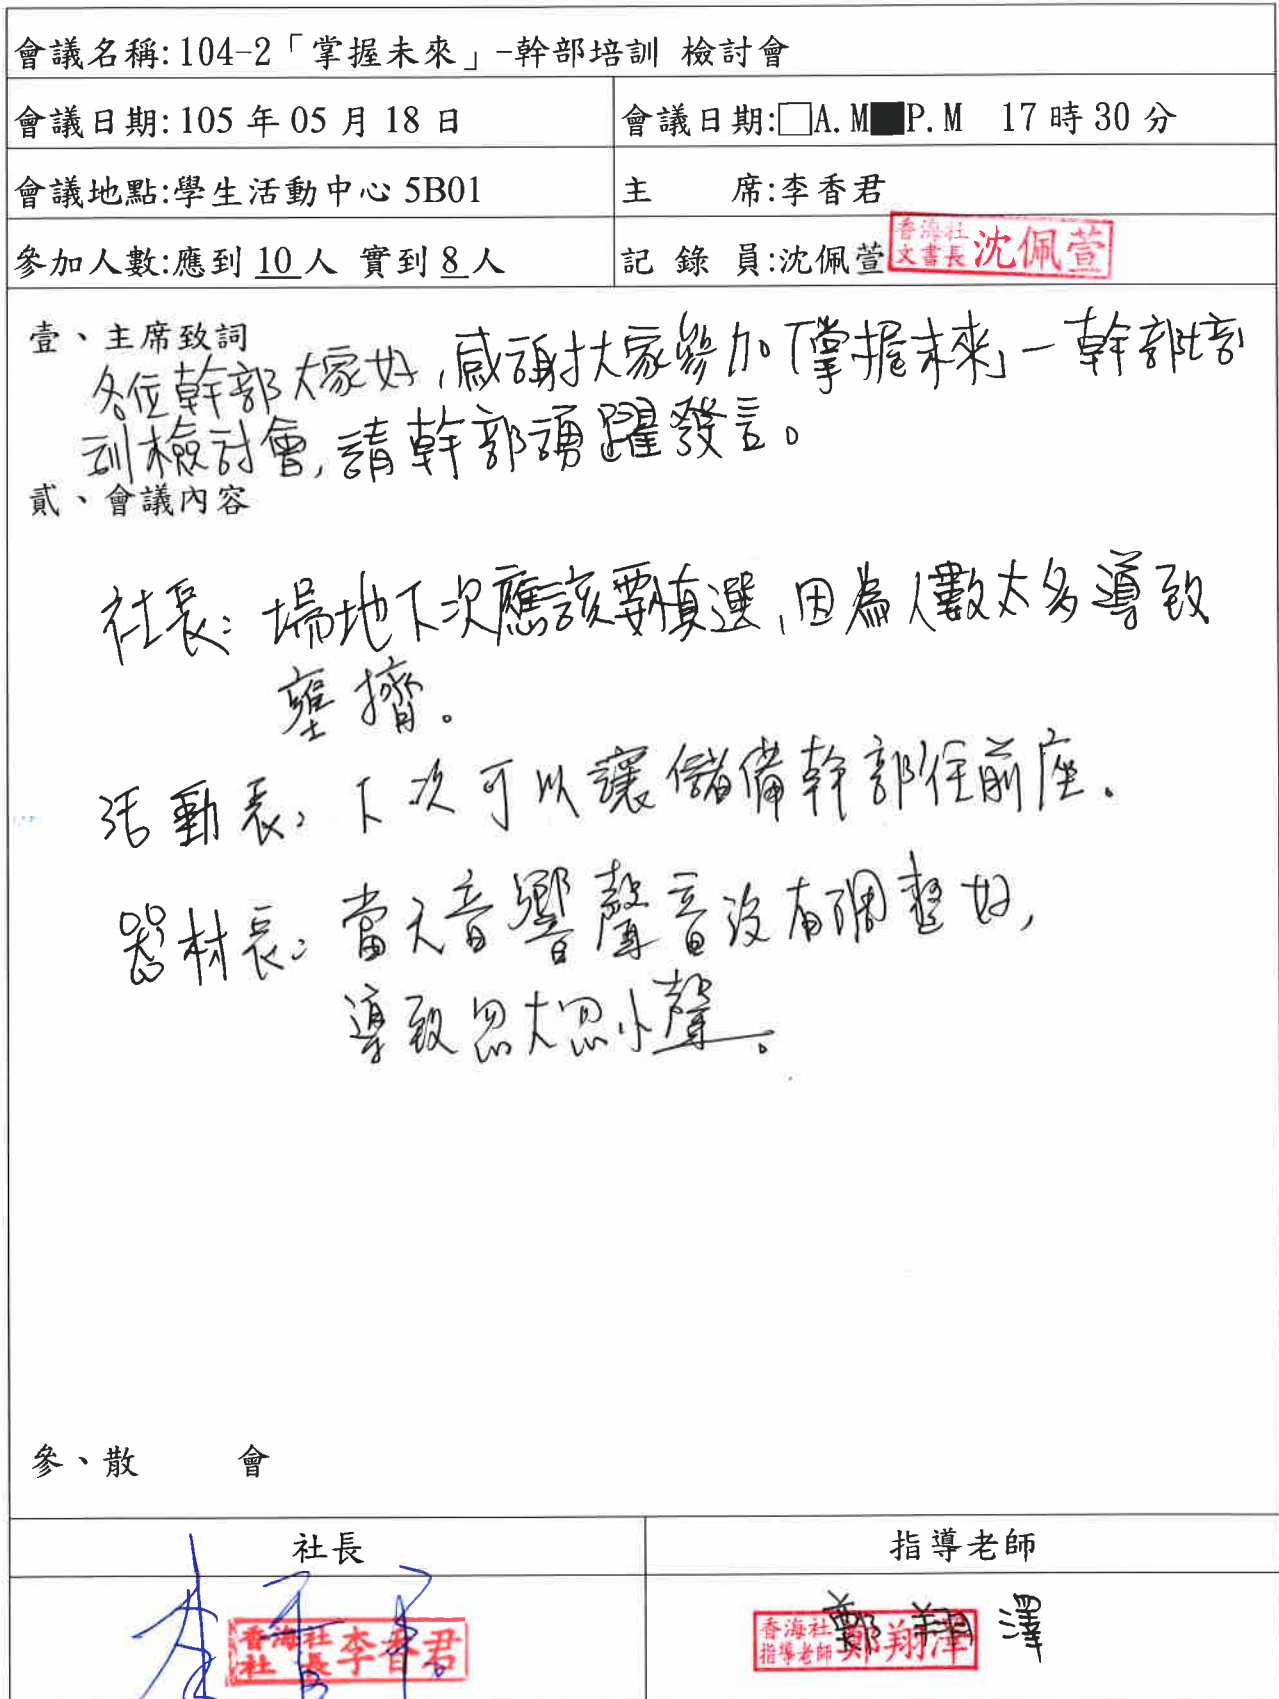 會議名稱:104-2「掌握未來」-幹部培訓 檢討會
會議日期:105 年 05 月 18 日
會議日期:□A.M■P.M 17 時 30 分
會議地點:學生活動中心 5B01
主 席:李香君
參加人數:應到 10 人 實到 8 人
記 錄 員:沈佩萱
香海社
文書長 沈佩萱
壹、主席致詞
各位幹部大家好,感謝大家參加「掌握未來」-幹部培
訓檢討會,請幹部踴躍發言。
貳、會議內容
社長:場地下次應該要慎選,因為人數太多導致
壅擠。
活動長:下次可以讓儲備幹部往前座。
器材長:當天音響聲音沒有調整好,
導致忽大忽小聲。
參、散 會
社長
指導老師
李香君
香海社
社 長 李香君
鄭翔澤
香海社
指導老師 鄭翔澤